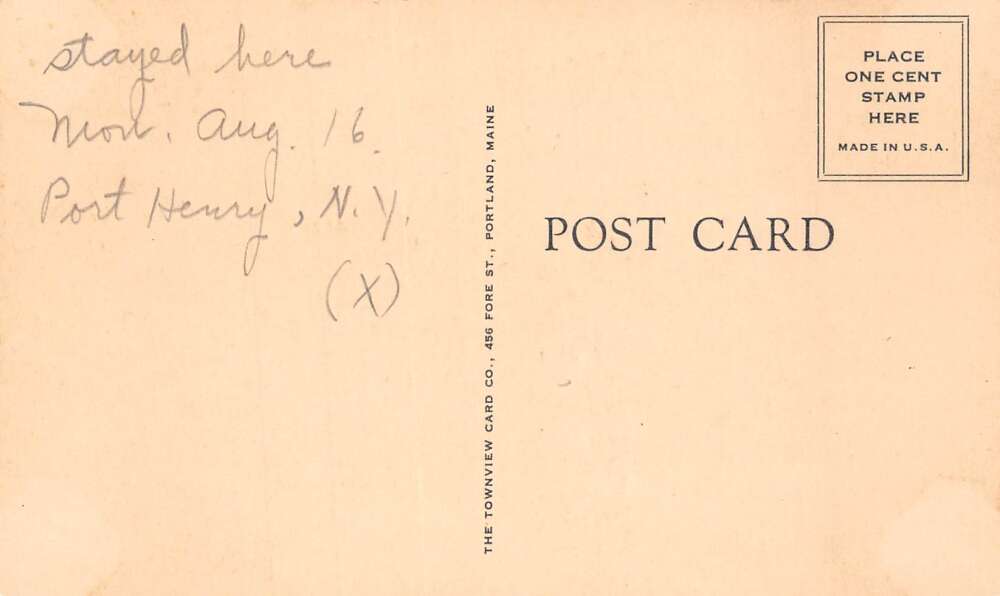 stayed here
Mon. Aug. 16.
Port Henry, N.Y.
(X)
THE TOWNVIEW CARD CO., 456 FORE ST., PORTLAND, MAINE
POST CARD
PLACE
ONE CENT
STAMP
HERE
MADE IN U.S.A.